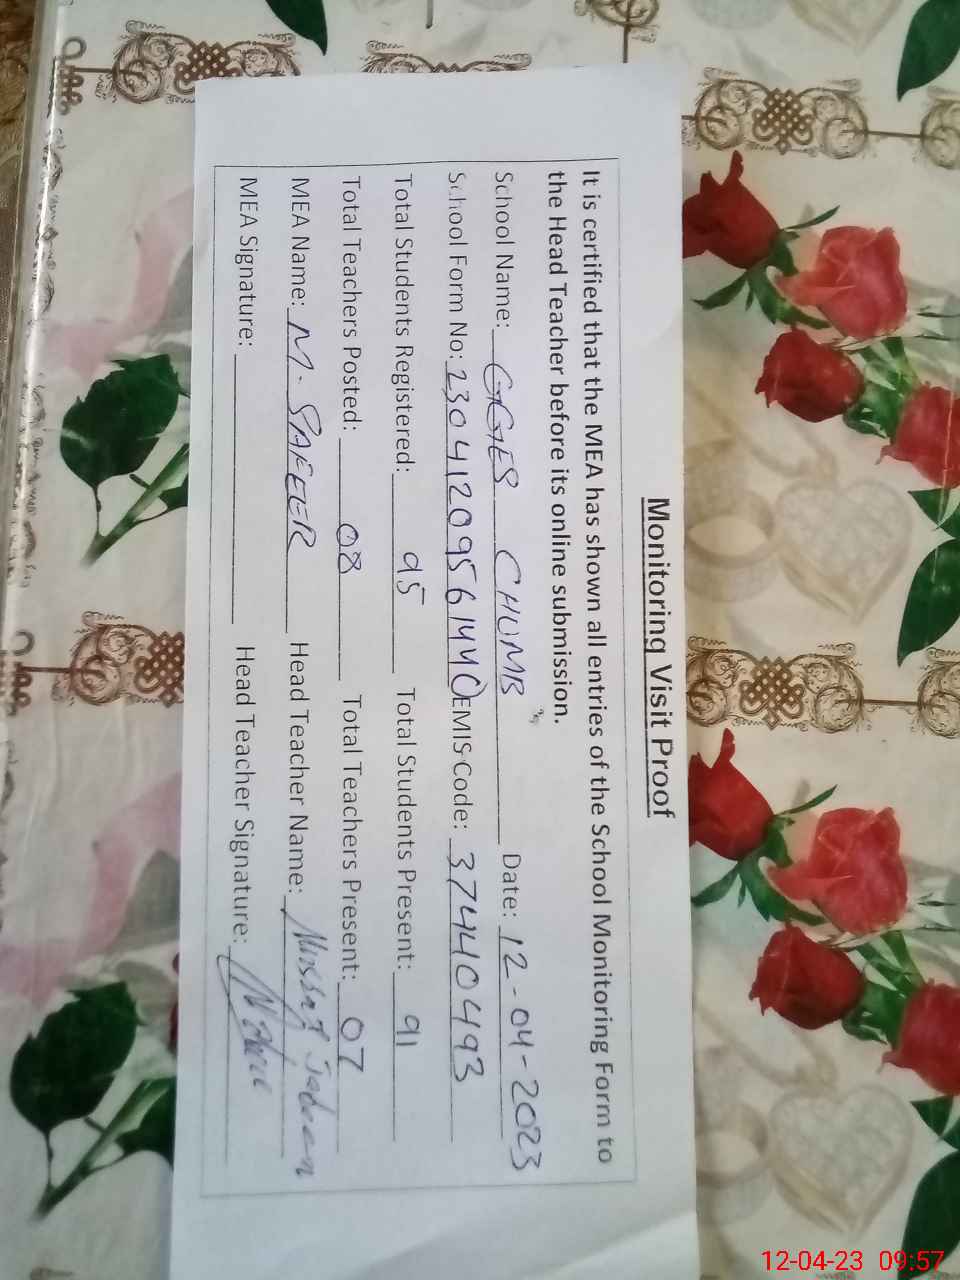 Monitoring Visit Proof
It is certified that the MEA has shown all entries of the School Monitoring Form to
the Head Teacher before its online submission.
School Name: GGES CHUMB Date: 12-04-2023
School Form No: 23041209561440 EMIS Code: 37440493
Total Students Registered: 95 Total Students Present: 91
Total Teachers Posted: 08 Total Teachers Present: 07
MEA Name: M. SAFEER Head Teacher Name: Mussarat Jabeen
MEA Signature: Head Teacher Signature:
12-04-23 09:57